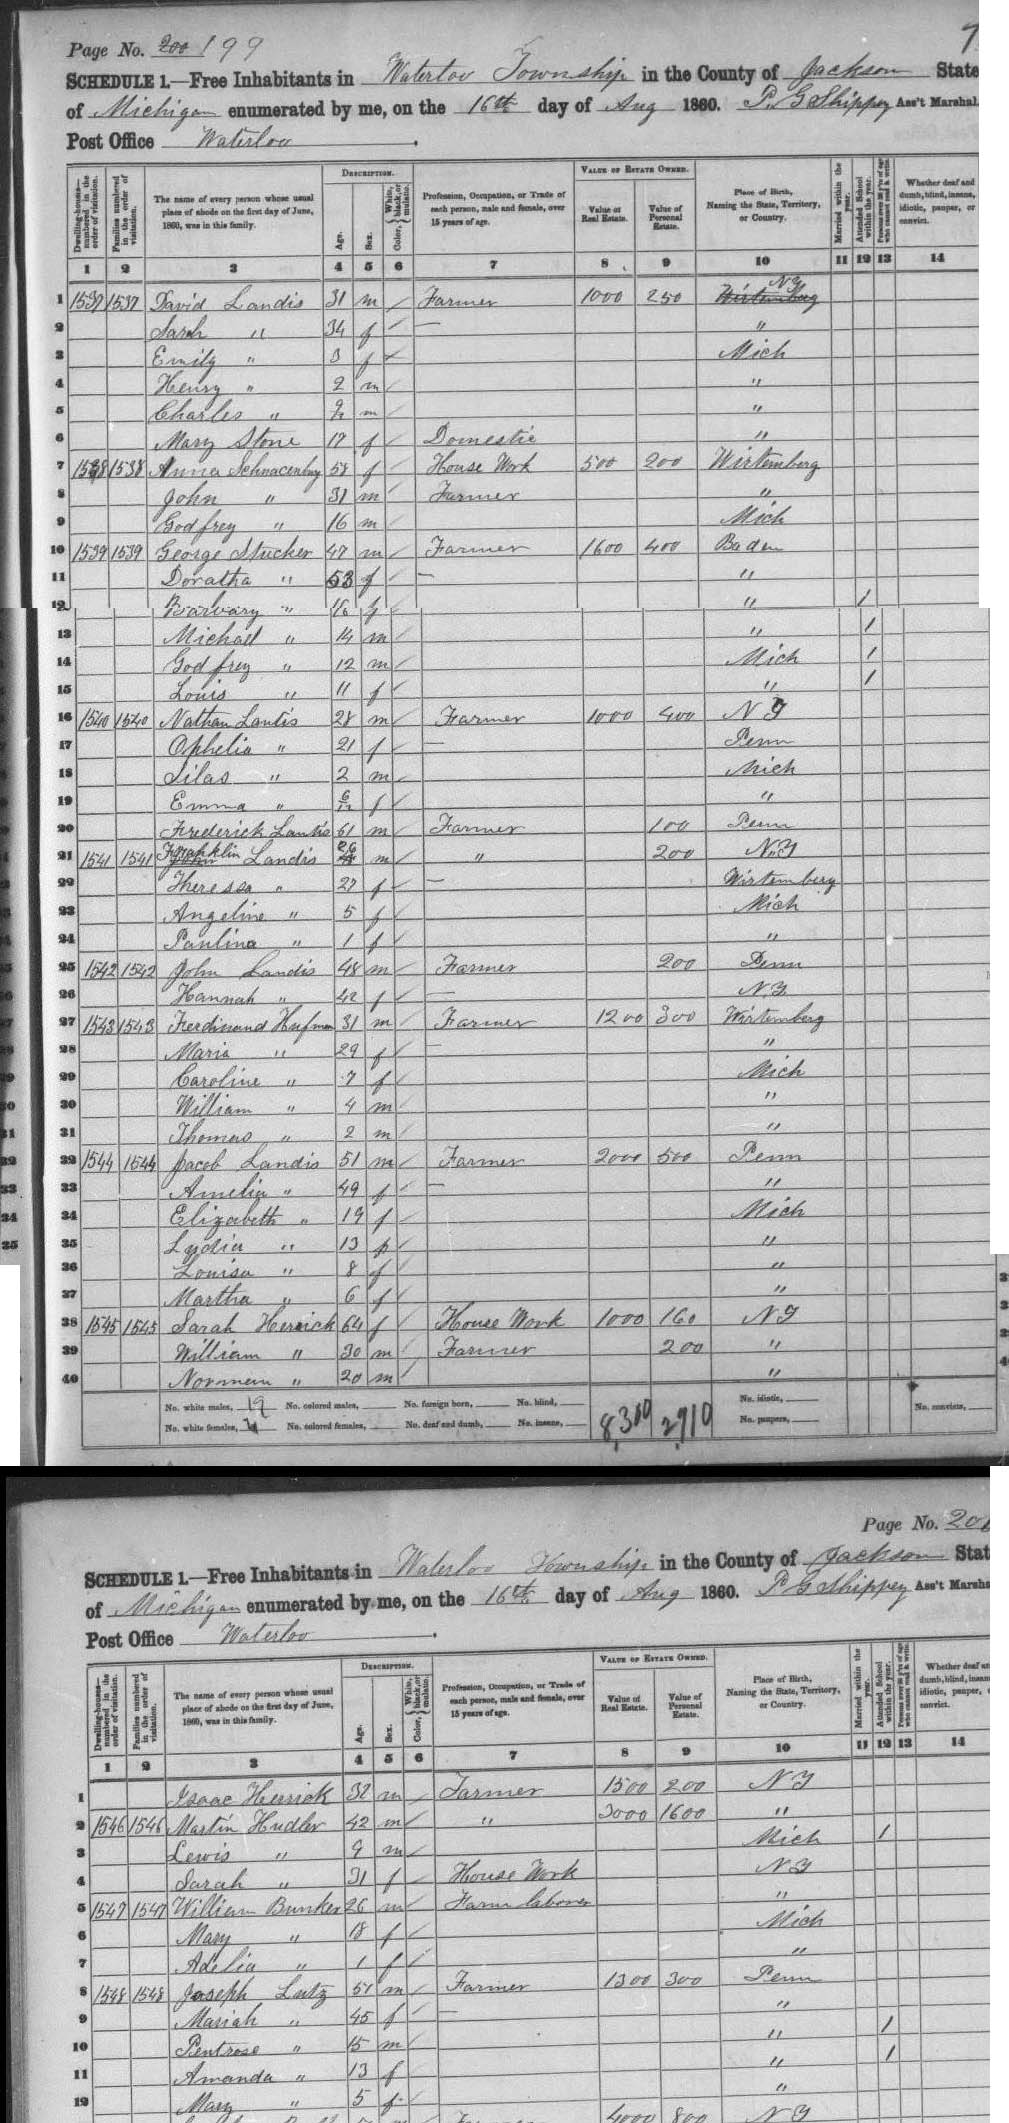 Page No. 200 199
SCHEDULE 1.—Free Inhabitants in Waterloo Township in the County of Jackson State
of Michigan enumerated by me, on the 16th day of Aug 1860. P. G Shippey Ass't Marshal.
Post Office Waterloo
Dwelling-houses—numbered in the order of visitation. Families numbered in the order of visitation. The name of every person whose usual place of abode on the first day of June, 1860, was in this family. DESCRIPTION. Age. Sex. Color, White, black, or mulatto. Profession, Occupation, or Trade of each person, male and female, over 15 years of age. VALUE OF ESTATE OWNED. Value of Real Estate. Value of Personal Estate. Place of Birth, Naming the State, Territory, or Country. Married within the year. Attended School within the year. Persons over 20 y'rs of age who cannot read & write. Whether deaf and dumb, blind, insane, idiotic, pauper, or convict.
1 2 3 4 5 6 7 8 9 10 11 12 13 14
1 1537 1537 David Landis 31 m / Farmer 1000 250 Wirtemberg NY
2 Sarah " 34 f / — "
3 Emily " 3 f / Mich
4 Henry " 2 m / "
5 Charles " m / "
6 Mary Stone 17 f / Domestic "
7 1538 1538 Anna Schnacenbury 58 f / House Work 500 200 Wirtemberg
8 John " 31 m / Farmer "
9 Godfrey " 16 m / Mich
10 1539 1539 George Stucker 47 m / Farmer 1600 400 Baden
11 Doratha " 53 f / — "
12 Barvary " 16 f / " 1
13 Michael " 14 m / " 1
14 Godfrey " 12 m / Mich 1
15 Louis " 11 f / " 1
16 1540 1540 Nathan Lantis 28 m / Farmer 1000 400 N Y
17 Ophelia " 21 f / — Penn
18 Silas " 2 m / Mich
19 Emma " 6/12 f / "
20 Frederick Lantis 61 m / Farmer 100 Penn
21 1541 1541 Franklin Landis 26 m / " 200 N.Y
22 Theressa " 27 f / — Wirtemberg
23 Angeline " 5 f / Mich
24 Paulina " 1 f / "
25 1542 1542 John Landis 48 m / Farmer 200 Penn
26 Hannah " 42 f / — N.Y.
27 1543 1543 Ferdinand Hufman 31 m / Farmer 1200 300 Wirtemberg
28 Maria " 29 f / — "
29 Caroline " 7 f / Mich
30 William " 4 m / "
31 Thomas " 2 m / "
32 1544 1544 Jacob Landis 51 m / Farmer 2000 500 Penn
33 Amelia " 49 f / — "
34 Elizabeth " 19 f / Mich
35 Lydia " 13 f / "
36 Louisa " 8 f / "
37 Martha " 6 f / "
38 1545 1545 Sarah Herrick 64 f / House Work 1000 160 N Y
39 William " 30 m / Farmer 200 "
40 Normem " 20 m / "
No. white males, 19 No. colored males, No. foreign born, No. blind, 8,300 2,910 No. idiotic,
No. white females, No. colored females, No. deaf and dumb, No. insane, No. paupers, No. convicts,
Page No. 200
SCHEDULE 1.—Free Inhabitants in Waterloo Township in the County of Jackson Stat
of Michigan enumerated by me, on the 16th day of Aug 1860. P G Shippey Ass't Marsha
Post Office Waterloo
Dwelling-houses—numbered in the order of visitation. Families numbered in the order of visitation. The name of every person whose usual place of abode on the first day of June, 1860, was in this family. DESCRIPTION. Age. Sex. Color, White, black, or mulatto. Profession, Occupation, or Trade of each person, male and female, over 15 years of age. VALUE OF ESTATE OWNED. Value of Real Estate. Value of Personal Estate. Place of Birth, Naming the State, Territory, or Country. Married within the year. Attended School within the year. Persons over 20 y'rs of age who cannot read & write. Whether deaf an dumb, blind, insan idiotic, pauper, convict.
1 2 3 4 5 6 7 8 9 10 11 12 13 14
1 Isaac Herrick 32 m / Farmer 1500 200 N Y
2 1546 1546 Martin Hudler 42 m / " 3000 1600 "
3 Lewis " 9 m / Mich 1
4 Sarah " 31 f / House Work N Y
5 1547 1547 William Bunker 26 m / Farm laborer "
6 Mary " 18 f / Mich
7 Adelia " 1 f / "
8 1548 1548 Joseph Lutz 51 m / Farmer 1300 300 Penn
9 Mariah " 45 f / — "
10 Pentrose " 15 m / " 1
11 Amanda " 13 f " 1
12 Mary " 5 f "
Farmer 4000 800 N Y